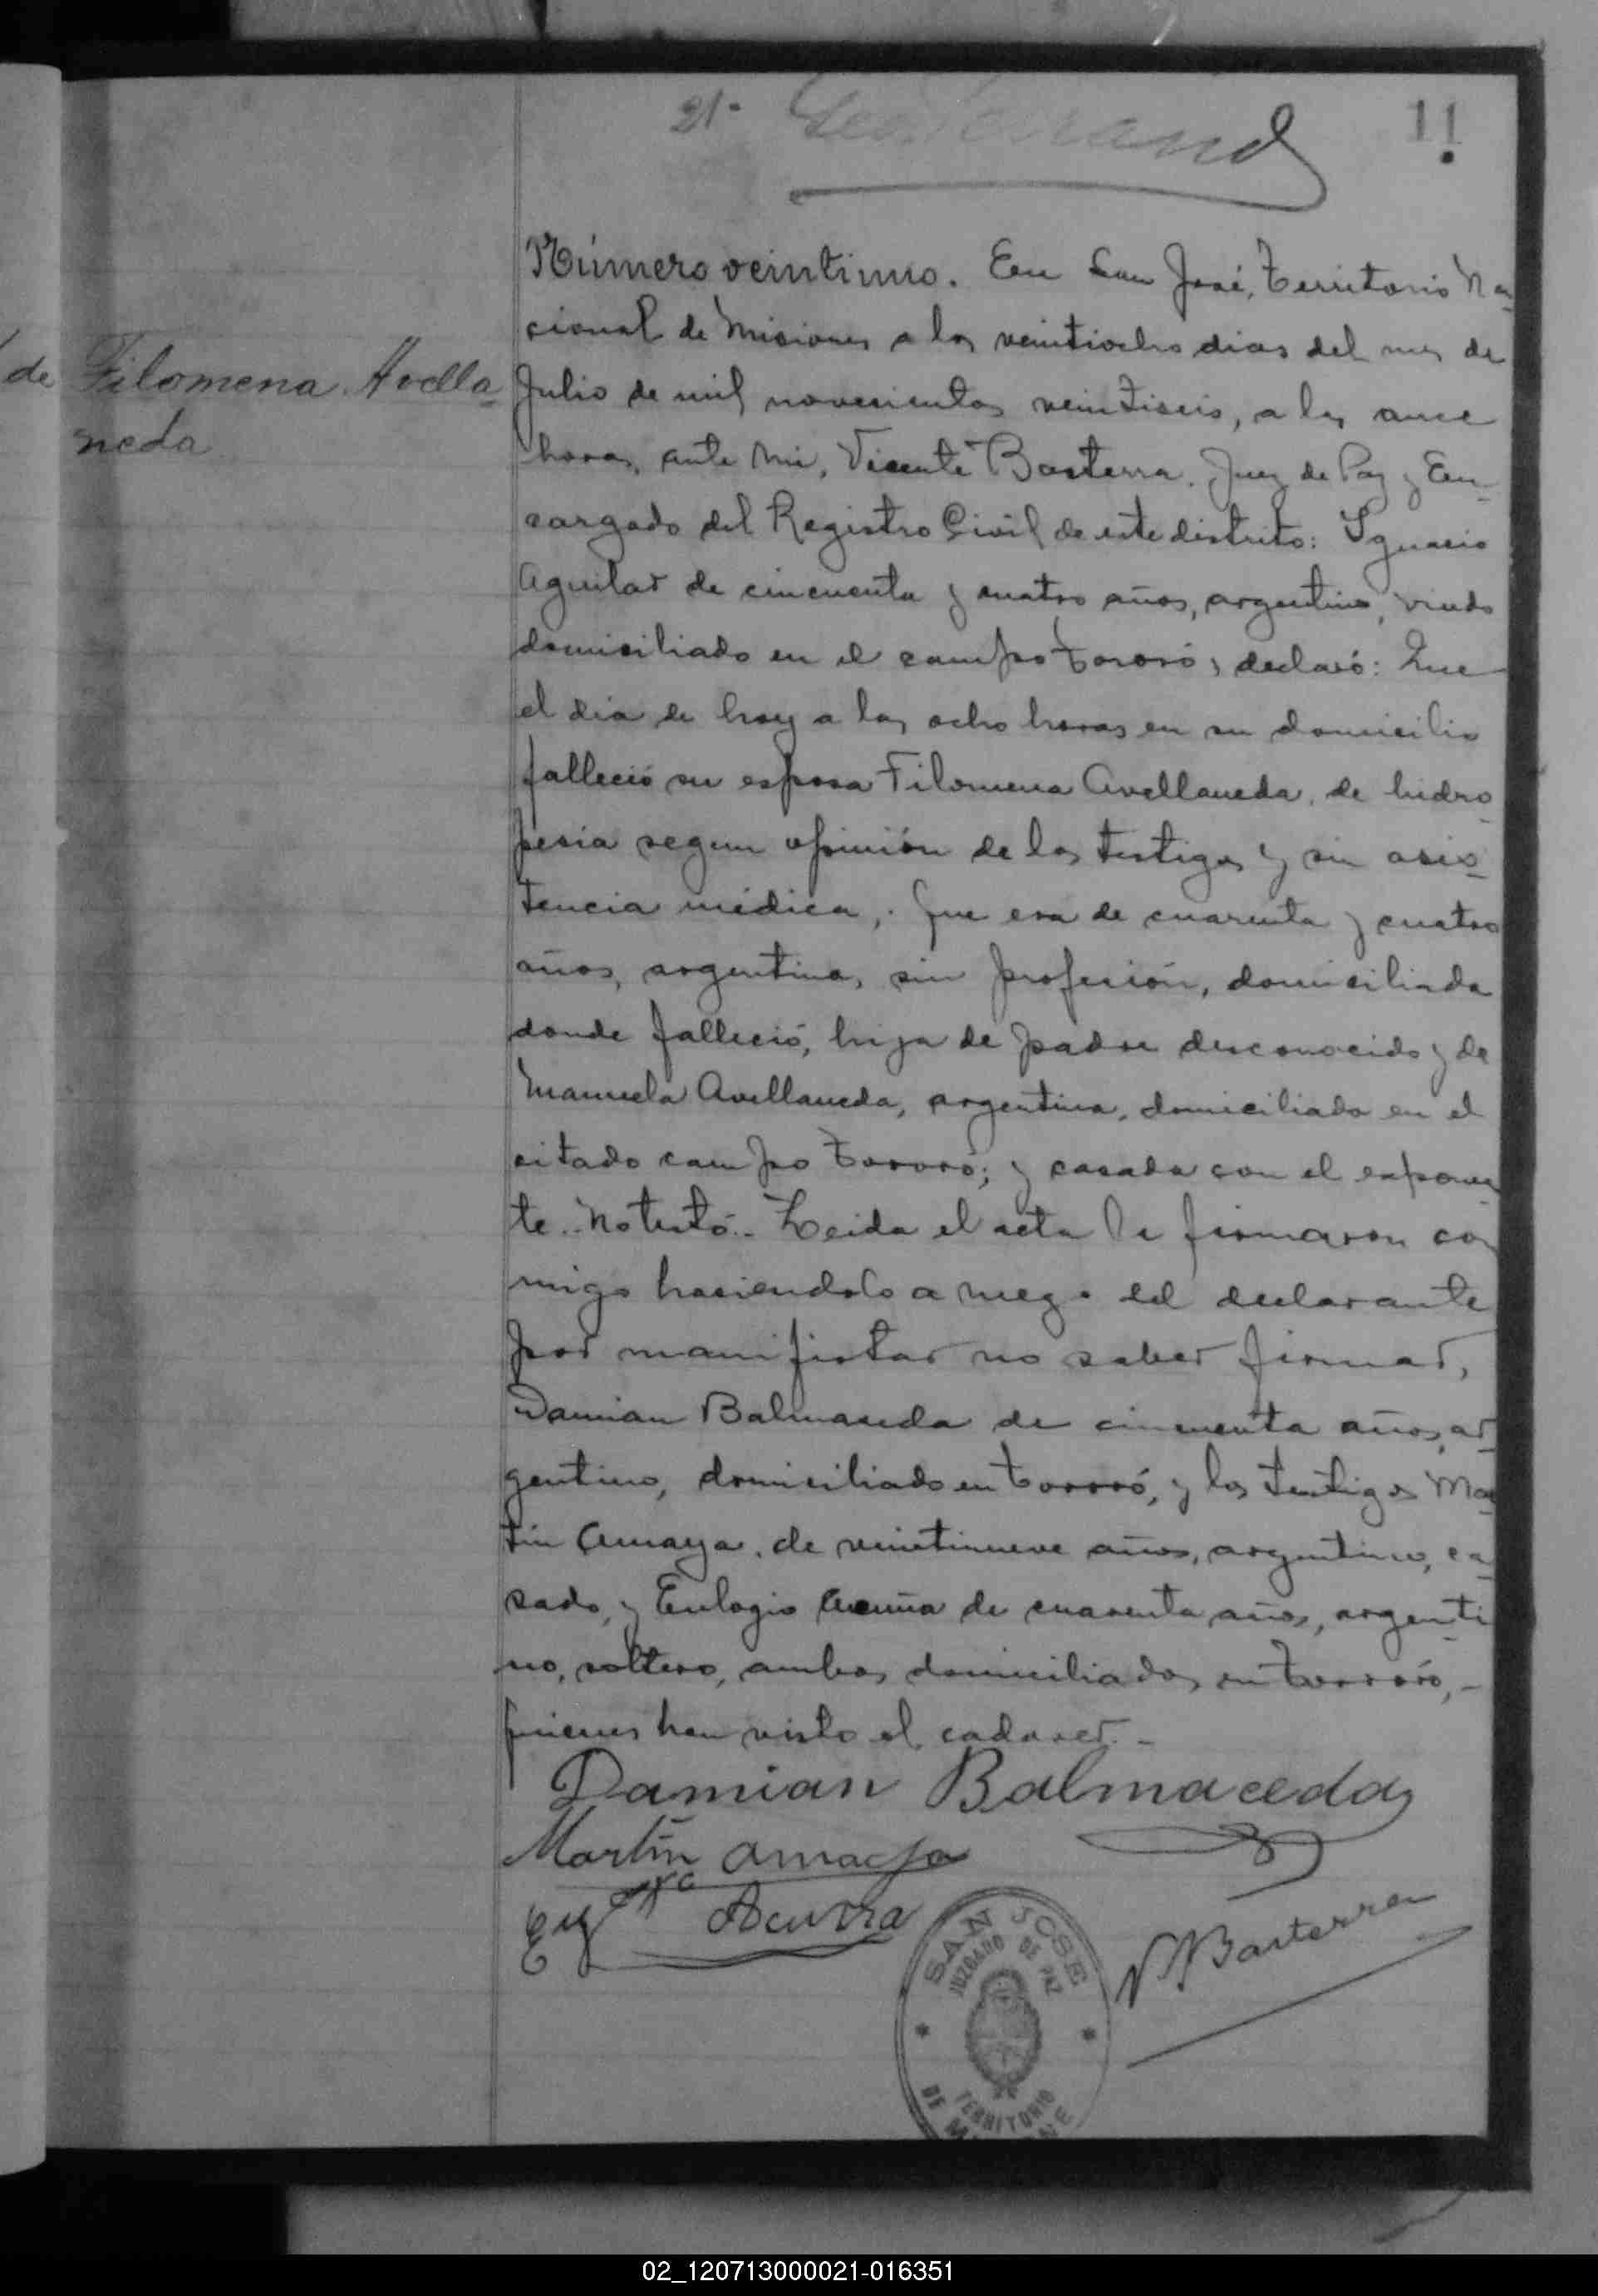 21.
11
de Filomena Avella-
neda
Número veintiuno. En San José, Territorio Na-
cional de Misiones a los veintiocho dias del mes de
Julio de mil novecientos veintiseis, a las once
horas, ante mi, Vicente Basterra, Juez de Paz y En-
cargado del Registro Civil de este distrito: Ignacio
Aguilar de cincuenta y cuatro años, argentino, viudo
domiciliado en el campo Tororó, declaró: Que
el dia de hoy a las ocho horas en su domicilio
falleció su esposa Filomena Avellaneda, de hidro-
pesia segun opinión de los testigos y sin asis-
tencia médica, que era de cuarenta y cuatro
años, argentina, sin profesión, domiciliada
donde falleció, hija de padre desconocido y de
Manuela Avellaneda, argentina, domiciliada en el
citado campo Tororó; y casada con el exponen-
te. No testó. Leida el acta la firmaron con-
migo haciendolo a ruego del declarante
por manifestar no saber firmar,
Damian Balmaseda de cincuenta años, ar-
gentino, domiciliado en Tororó, y los testigos Mar-
tin Amaya, de veintinueve años, argentino, ca-
sado, y Eulogio Acuña de cuarenta años, argenti-
no, soltero, ambos domiciliados en Tororó, -
quienes han visto el cadaver. -
Damian Balmaceda
Martín Amaya
Acuña
V. Basterra
SAN JOSE
JUZGADO DE PAZ
TERRITORIO
DE
02_120713000021-016351